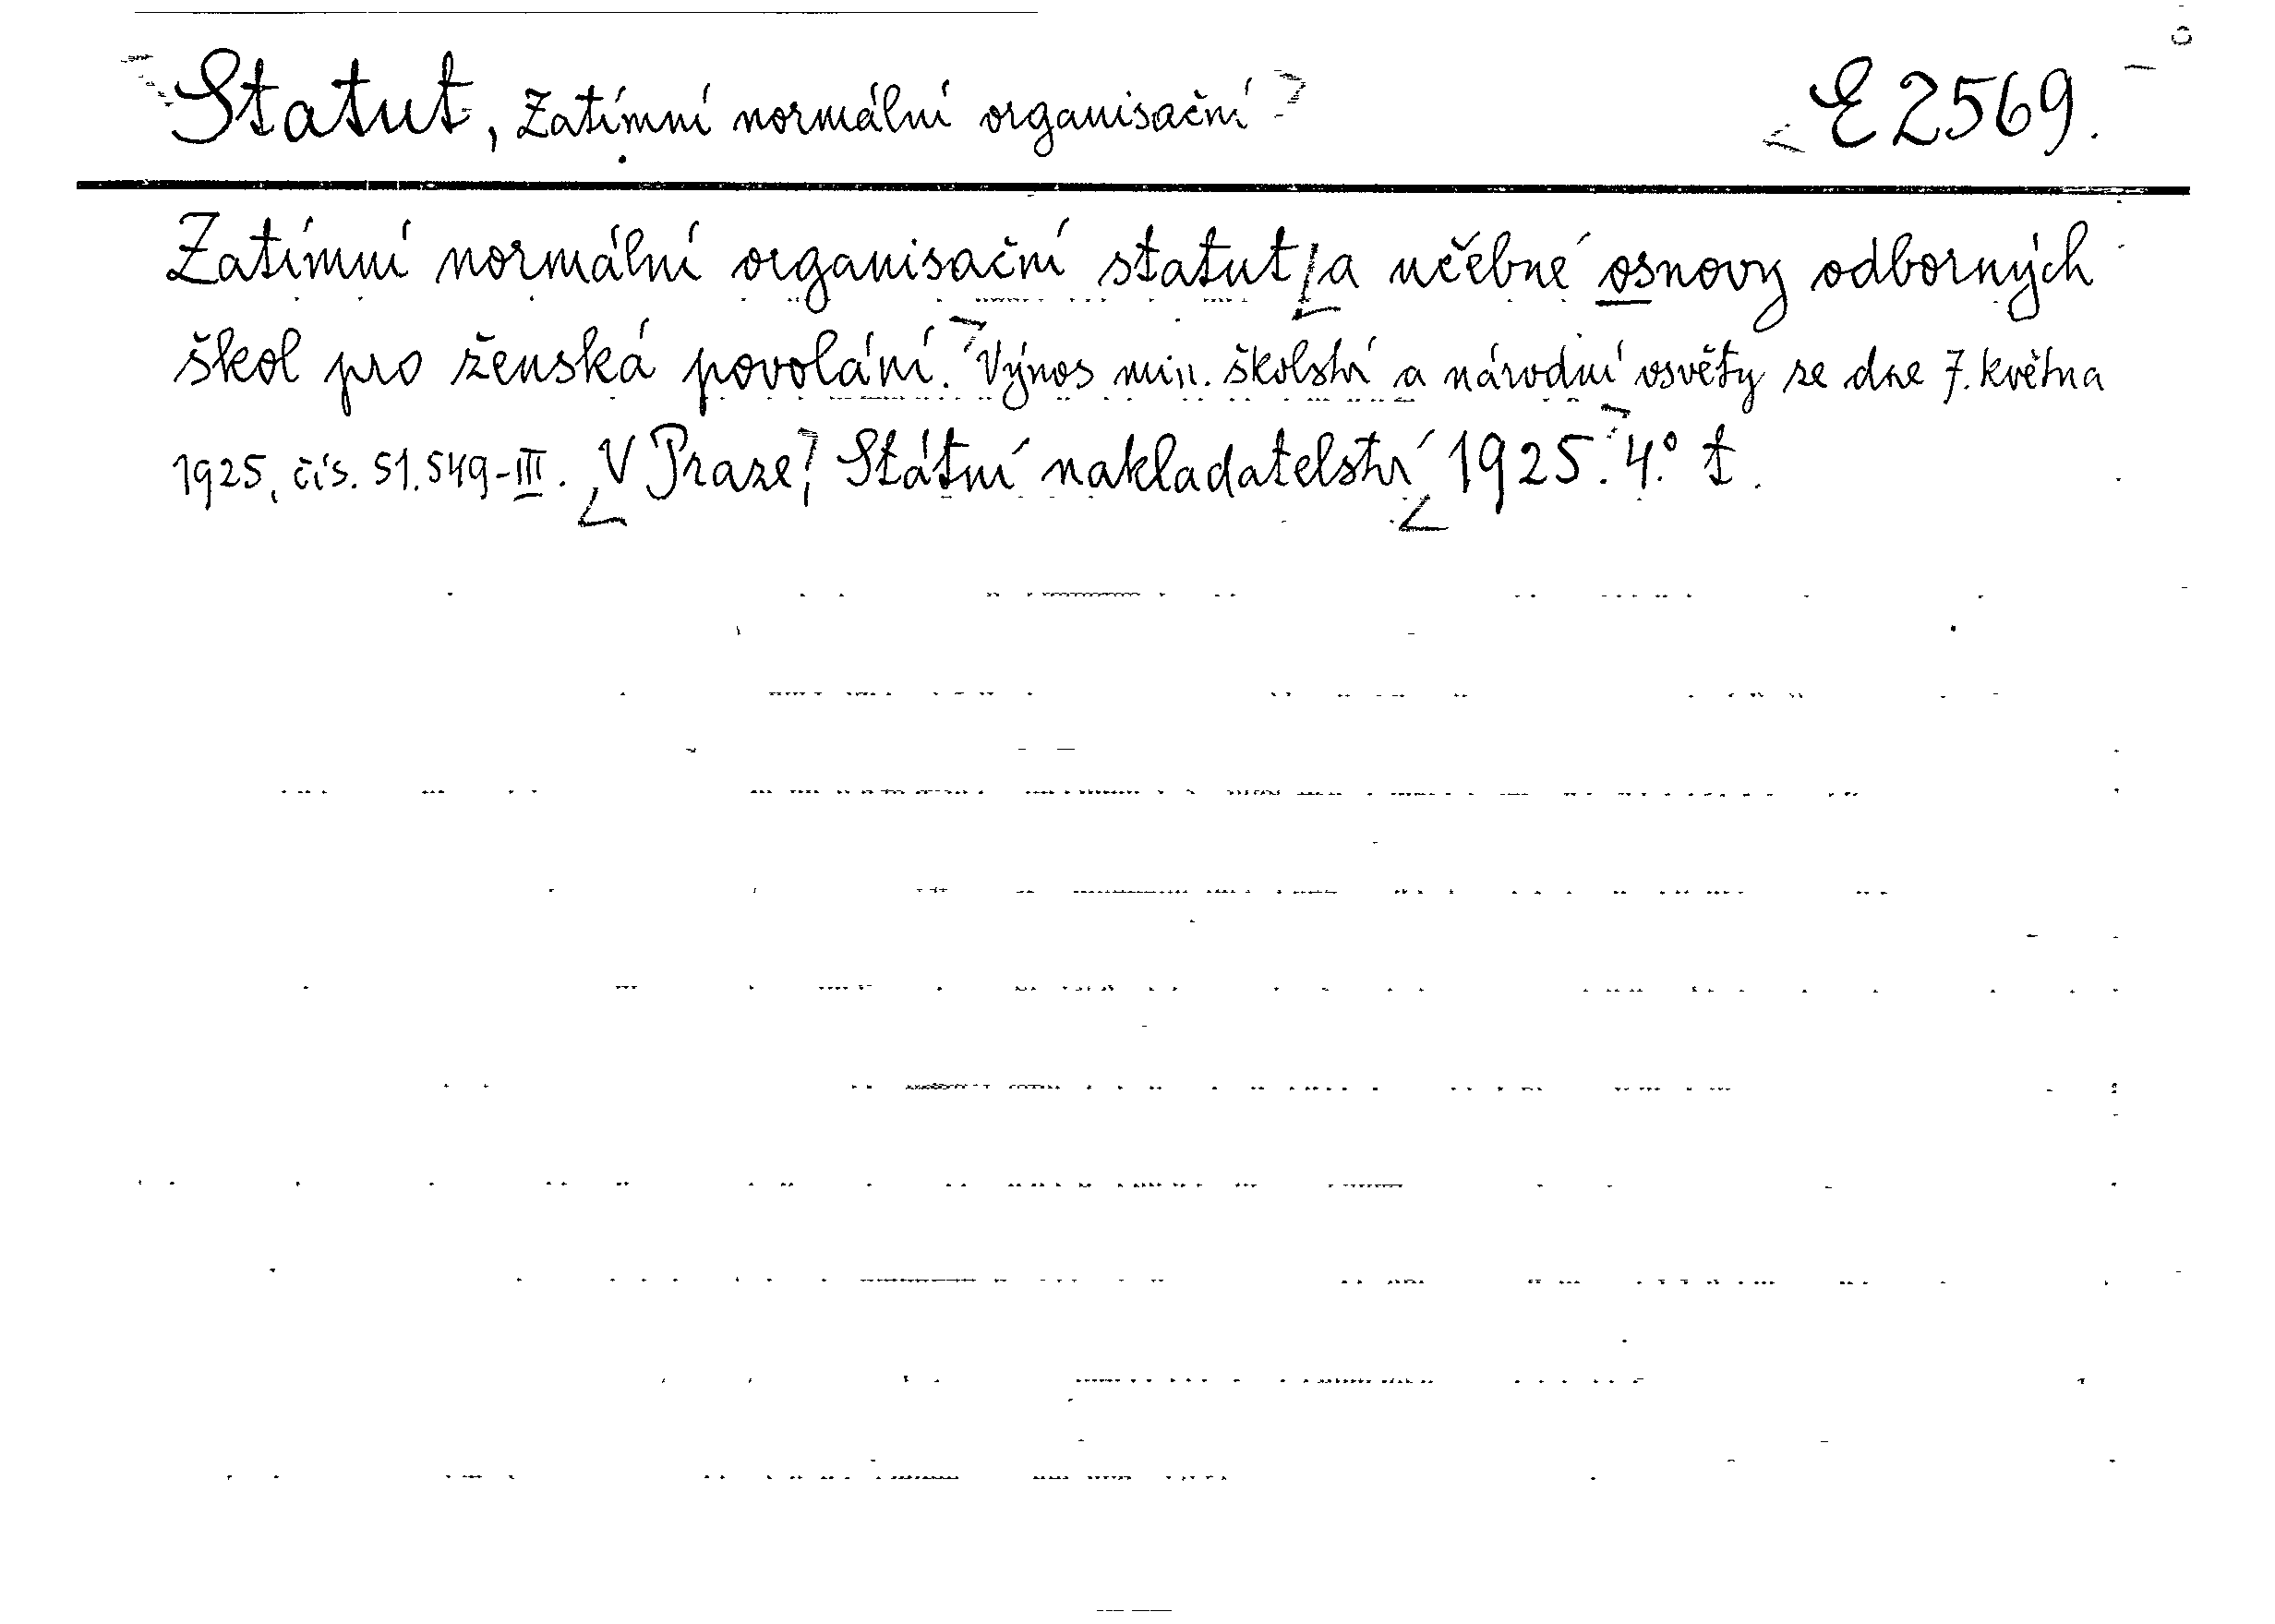 Statut, Zatímní normální organisační E 2569.
Zatímní normální organisační statut a učebné osnovy odborných
škol pro ženská povolání. Výnos min. školství a národní osvěty ze dne 7. května
1925, čís. 51.549-III. V Praze, Státní nakladatelství 1925. 4.° t.